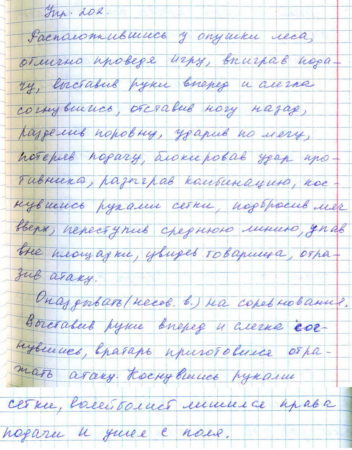 Упр. 202.
Расположившись у опушки леса,
отлично проведя игру, выиграв пода-
чу, выставив руки вперед и слегка
согнувшись, отставив ногу назад,
разделив поровну, ударив по мячу,
потеряв подачу, блокировав удар про-
тивника, разыграв комбинацию, кос-
нувшись руками сетки, подбросив мяч
вверх, переступив среднюю линию, упав
вне площадки, увидев товарища, отра-
зив атаку.
Опаздывать (несов. в.) на соревнования.
Выставив руки вперед и слегка сог-
нувшись, вратарь приготовился отра-
жать атаку. Коснувшись руками
сетки, волейболист лишился права
подачи и ушел с поля.